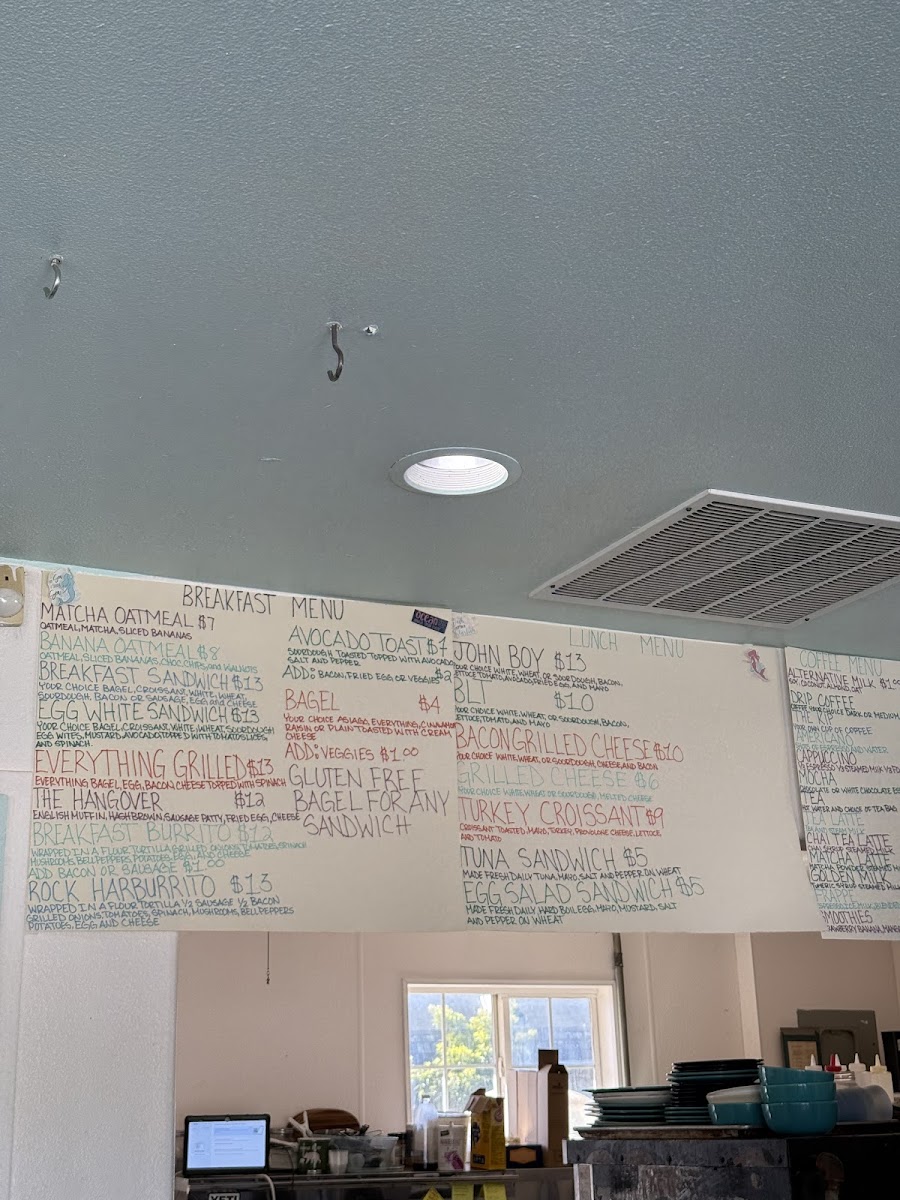 BREAKFAST MENU
MATCHA OATMEAL $7
OATMEAL, MATCHA, SLICED BANANAS
BANANA OATMEAL $8
OATMEAL, SLICED BANANAS, CHOC. CHIPS, and WALNUTS
BREAKFAST SANDWICH $13
YOUR CHOICE BAGEL, CROISSANT, WHITE, WHEAT,
SOURDOUGH, BACON OR SAUSAGE, EGG, and CHEESE
EGG WHITE SANDWICH $13
YOUR CHOICE BAGEL, CROISSANT, WHITE, WHEAT, SOURDOUGH
EGG WITES, MUSTARD, AVOCADO TOPPED WITH TOMATO SLICES,
AND SPINACH.
EVERYTHING GRILLED $13
EVERYTHING BAGEL, EGG, BACON CHEESE TOPPED WITH SPINACH
THE HANGOVER $12
ENGLISH MUFFIN, HASHBROWN, SAUSAGE PATTY, FRIED EGG, CHEESE
BREAKFAST BURRITO $12
WRAPPED IN A FLOUR TORTILLA GRILLED ONIONS, TOMATOES, SPINACH
MUSHROOMS, BELL PEPPERS, POTATOES, EGG, AND CHEESE
ADD BACON OR SAUSAGE $1.00
ROCK HARBURRITO $13
WRAPPED IN A FLOUR TORTILLA 1/2 SAUSAGE 1/2 BACON
GRILLED ONIONS, TOMATOES, SPINACH, MUSHROOMS, BELL PEPPERS
POTATOES, EGG AND CHEESE
AVOCADO TOAST $7
SOURDOUGH TOASTED TOPPED WITH AVOCADO
SALT AND PEPPER
ADD: BACON, FRIED EGG OR VEGGIES $2
BAGEL $4
YOUR CHOICE ASIAGO, EVERYTHING, CINNAMON
RAISIN OR PLAIN TOASTED WITH CREAM
CHEESE
ADD: VEGGIES $1.00
GLUTEN FREE
BAGEL FOR ANY
SANDWICH
LUNCH MENU
JOHN BOY $13
YOUR CHOICE WHITE, WHEAT, OR SOURDOUGH, BACON,
LETTUCE TOMATO, AVOCADO, FRIED EGG, AND MAYO
BLT $10
YOUR CHOICE WHITE, WHEAT, OR SOURDOUGH, BACON,
LETTUCE, TOMATO, AND MAYO
BACON GRILLED CHEESE $10
YOUR CHOICE WHITE, WHEAT, OR SOURDOUGH, CHEESE, AND BACON
GRILLED CHEESE $6
YOUR CHOICE WHITE, WHEAT OR SOURDOUGH, MELTED CHEESE
TURKEY CROISSANT $9
CROISSANT TOASTED, MAYO, TURKEY, PROVOLONE CHEESE, LETTUCE
AND TOMATO
TUNA SANDWICH $5
MADE FRESH DAILY TUNA, MAYO, SALT AND PEPPER ON WHEAT
EGG SALAD SANDWICH $5
MADE FRESH DAILY, HARD BOIL EGG, MAYO, MUSTARD, SALT
AND PEPPER ON WHEAT
COFFEE MENU
ALTERNATIVE MILK $1.00
SOY, COCONUT, ALMOND, OAT
DRIP COFFEE
COFFEE YOUR CHOICE DARK OR MEDIUM
THE RIP
YOUR OWN CUP OF COFFEE
CAPPUCCINO
MOCHA
CHOCOLATE OR WHITE CHOCOLATE
TEA
HOT WATER AND CHOICE OF TEA BAG
TEA LATTE
CHAI TEA LATTE
MATCHA LATTE
MATCHA POWDER STEAMED
GOLDEN MILK
FRAPPE
SMOOTHIES
STRAWBERRY BANANA,
YETI